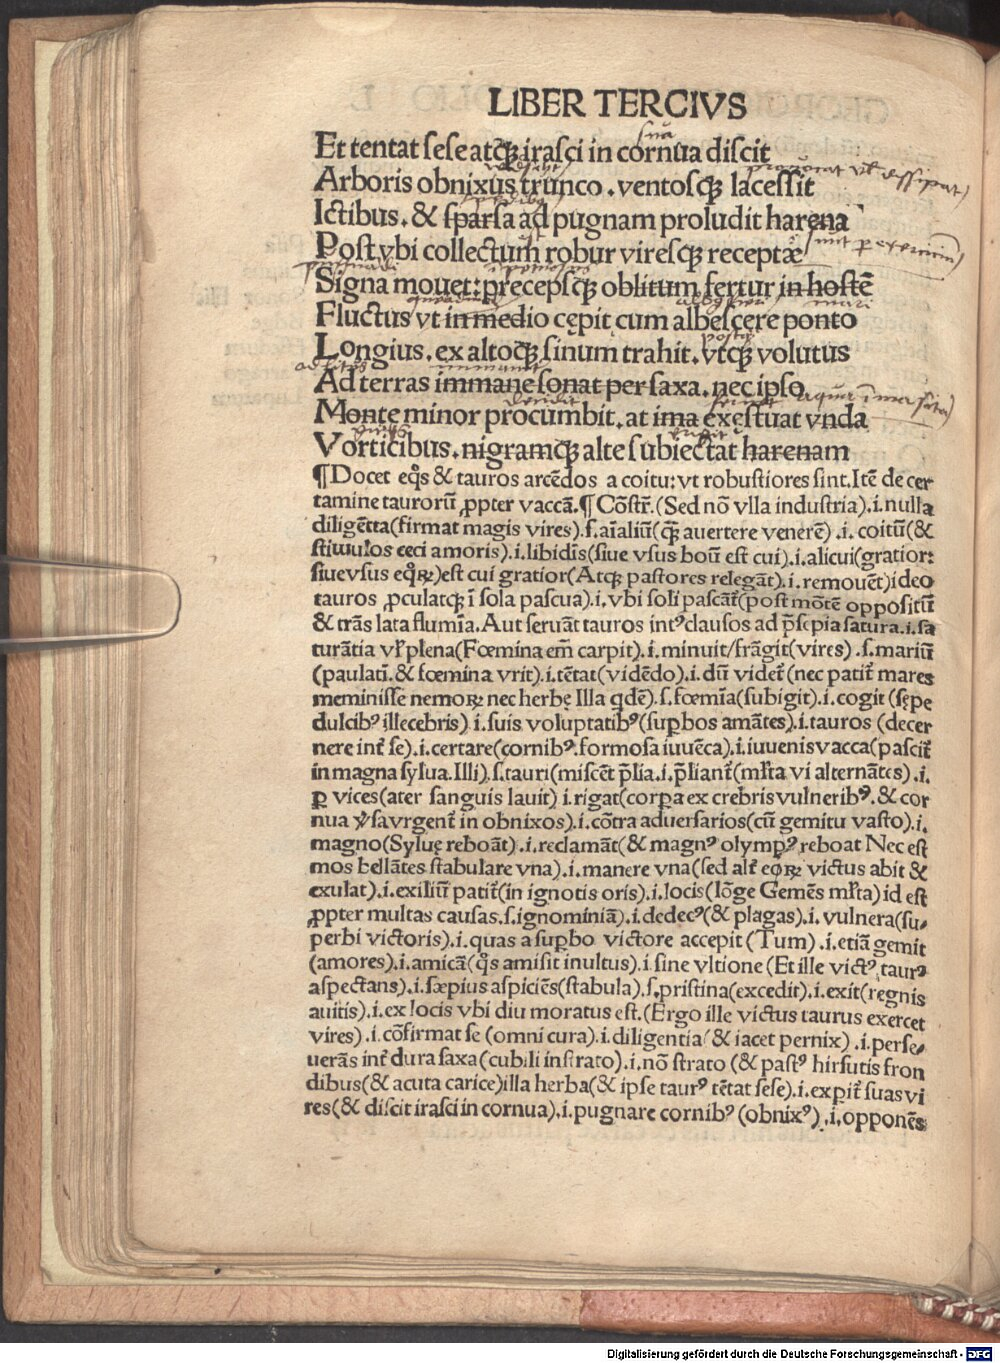 LIBER TERCIVS
Et tentat sese atq̃ irasci in cornua discit
Arboris obnixus trunco . ventosq̃ lacessit
Ictibus . & sparsa ad pugnam proludit harena
Post vbi collectum robur viresq̃ receptæ
Signa mouet: precepsq̃ oblitum fertur in hostē
Fluctus vt in medio cępit cum albescere ponto
Longius . ex altoq̃ sinum trahit . vtq̃ volutus
Ad terras immane sonat per saxa . nec ipso
Monte minor procumbit . at ima exęstuat vnda
Vorticibus . nigramq̃ alte subiectat harenam
¶ Docet eqꝰs & tauros arcēdos a coitu: vt robustiores sint. Itē de cer
tamine taurorū ꝓpter vaccā. ¶ Cōstr̄. (Sed nō vlla industria) .i. nulla
diligētta (firmat magis vires) .s. aīaliū (q̃ auertere venerē) .i. coitū (&
stiwulos ceci amoris) .i. libidīs (siue vsus boū est cui) .i. alicui (gratior:
siue vsus eqꝰꝝ) est cui gratior (Atq̃ pastores relegāt) .i. remouēt) ideo
tauros ꝓculatq̃ ī sola pascua) .i. vbi soli pascāt̄ (post mōtē oppositū
& trās lata flumīa. Aut seruāt tauros intꝰ clausos ad p̄sepia satura .i. sa
turātia vl̄ plena (Fœmina em̄ carpit) .i. minuit / frāgit (vires) .s. mariū
(paulatī . & fœmina vrit) .i. tētat (vidēdo) .i. dū videt̄ (nec patit̄ mares
meminisse nemoꝝ nec herbę Illa qdē) .s. fœmīa (subigit) .i. cogit (sępe
dulcibꝰ illecebris) .i. suis voluptatibꝰ (suꝑbos amātes) .i. tauros (decer
nere int̄ se) .i. certare (cornibꝰ . formosa iuuēca) .i. iuuenis vacca (pascit̄
in magna sylua . Illi) .s. tauri (miscēt p̄lia .i. p̄liant̄ (ml̄ta vi alternātes) .i.
ꝑ vices (ater sanguis lauit) .i. rigat (corꝑa ex crebris vulneribꝰ . & cor
nua v̄sa vrgent̄ in obnixos) .i. cōtra aduersarios (cū gemitu vasto) .i.
magno (Syluę reboāt) .i. reclamāt (& magnꝰ olympꝰ reboat Nec est
mos bellātes stabulare vna) .i. manere vna (sed alt̄ eoꝝ victus abit &
exulat) .i. exiliū patit̄ (in ignotis oris) .i. locis (lōge Gemēs ml̄ta) id est
ꝓpter multas causas .s. ignominiā) .i. dedecꝰ (& plagas) .i. vulnera (su-
perbi victoris) .i. quas a suꝑbo victore accepit (Tum) .i. etiā gemit
(amores) .i. amicā (qꝰs amisit inultus) .i. sine vltione (Et ille victꝰ taurꝰ
aspectans) .i. sæpius aspiciēs (stabula) .s. pristina (excedit) .i. exit (regnis
auitis) .i. ex locis vbi diu moratus est. (Ergo ille victus taurus exercet
vires) .i. cōfirmat se (omni cura) .i. diligentia (& iacet pernix) .i. perse-
uerās int̄ dura saxa (cubili instrato) .i. nō strato (& pastꝰ hirsutis fron
dibus (& acuta carice) illa herba (& ipse taurꝰ tētat sese) .i. exꝑit̄ suas vi
res (& discit irasci in cornua) .i. pugnare cornibꝰ (obnixꝰ) .i. opponēs
Digitalisierung gefördert durch die Deutsche Forschungsgemeinschaft - DFG